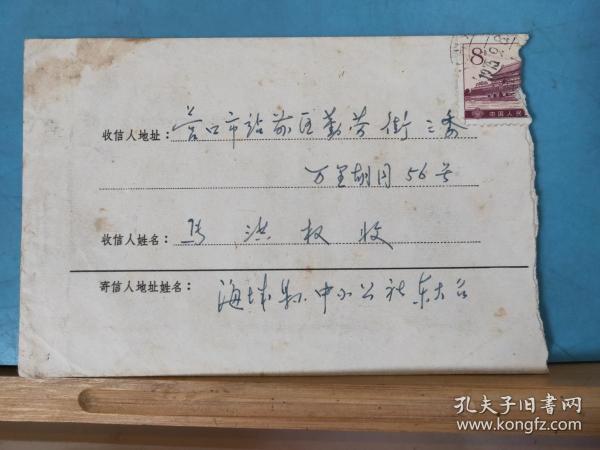 8
中国人民
收信人地址：营口市站前区勤劳街三委
万里胡同56号
收信人姓名：马洪权 收
寄信人地址姓名：海城县中小公社东大台
孔夫子旧书网
www.kongfz.com